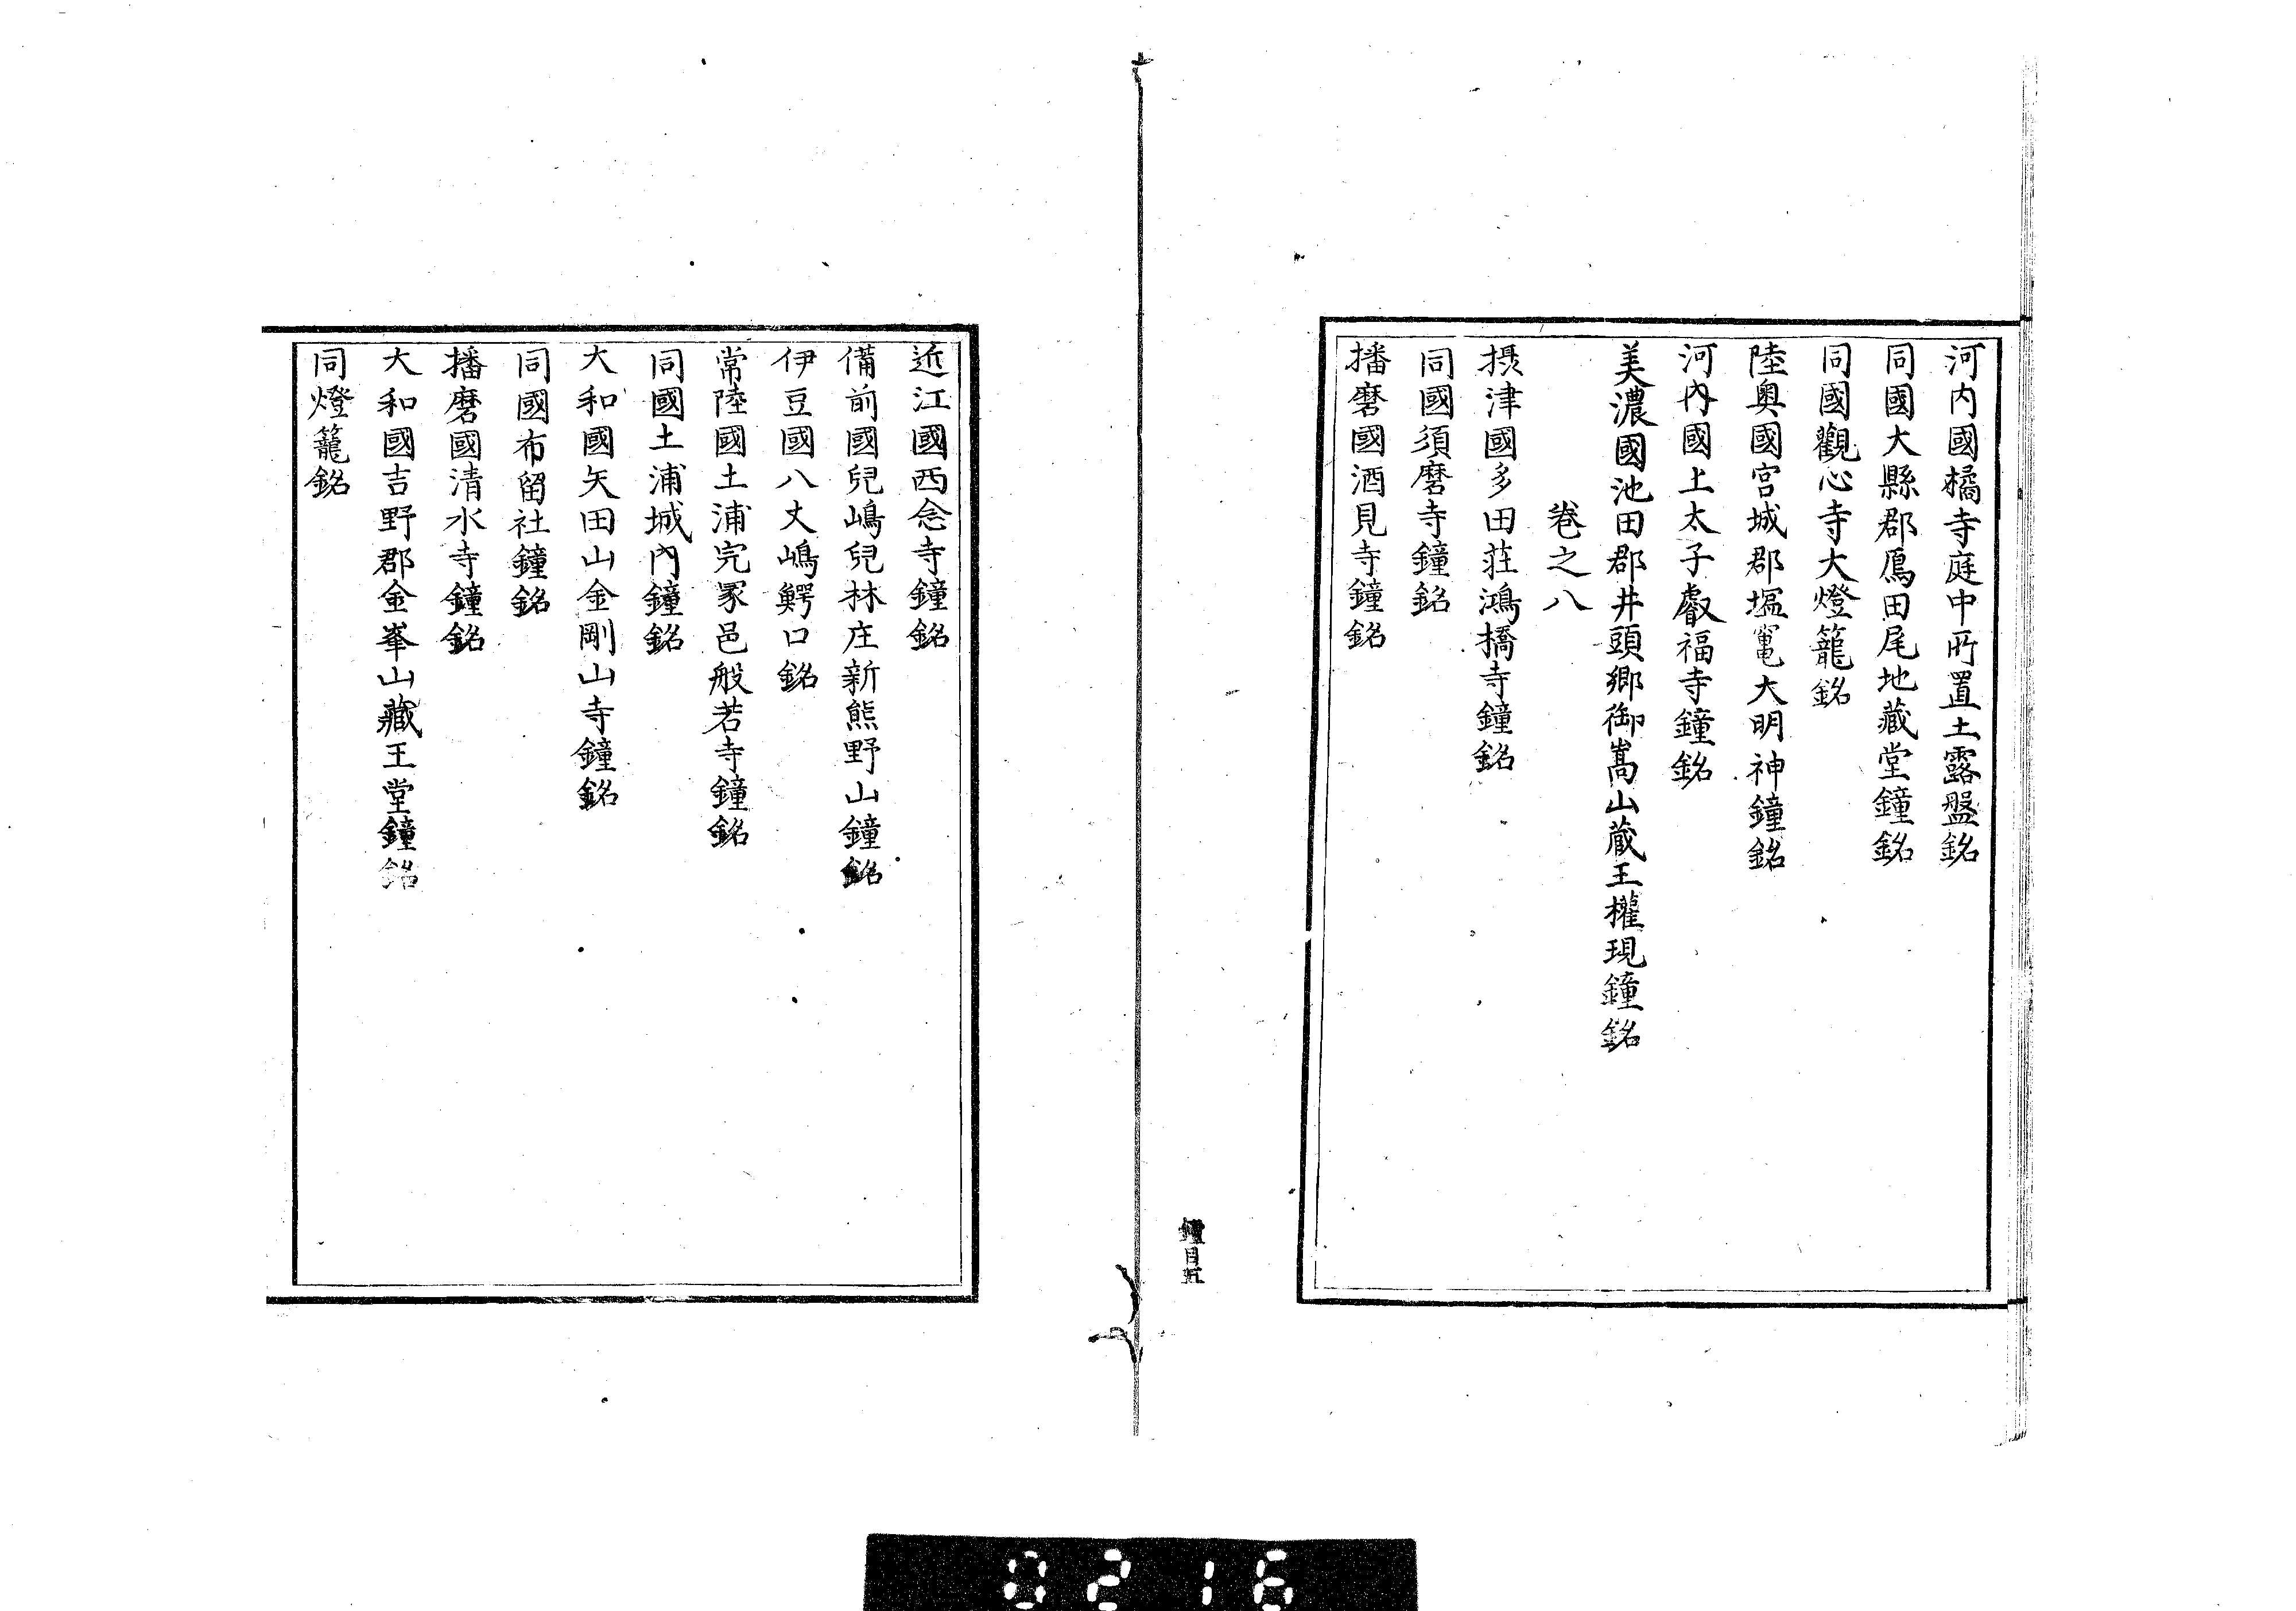 河内國橘寺庭中所置土露盤銘
同國大縣郡鳫田尾地藏堂鐘銘
同國觀心寺大燈籠銘
陸奥國宮城郡塩竃大明神鐘銘
河內國上太子叡福寺鐘銘
美濃國池田郡井頭郷御嵩山蔵王權現鐘銘
卷之八
摂津國多田荘鴻橋寺鐘銘
同國須磨寺鐘銘
播磨國酒見寺鐘銘
鐘目五
近江國西念寺鐘銘
備前國兒嶋兒林庄新熊野山鐘銘
伊豆國八丈嶋鰐口銘
常陸國土浦完冢邑般若寺鐘銘
同國土浦城內鐘銘
大和國矢田山金剛山寺鐘銘
同國布留社鐘銘
播磨國清水寺鐘銘
大和國吉野郡金峯山藏王堂鐘銘
同燈籠銘
0216